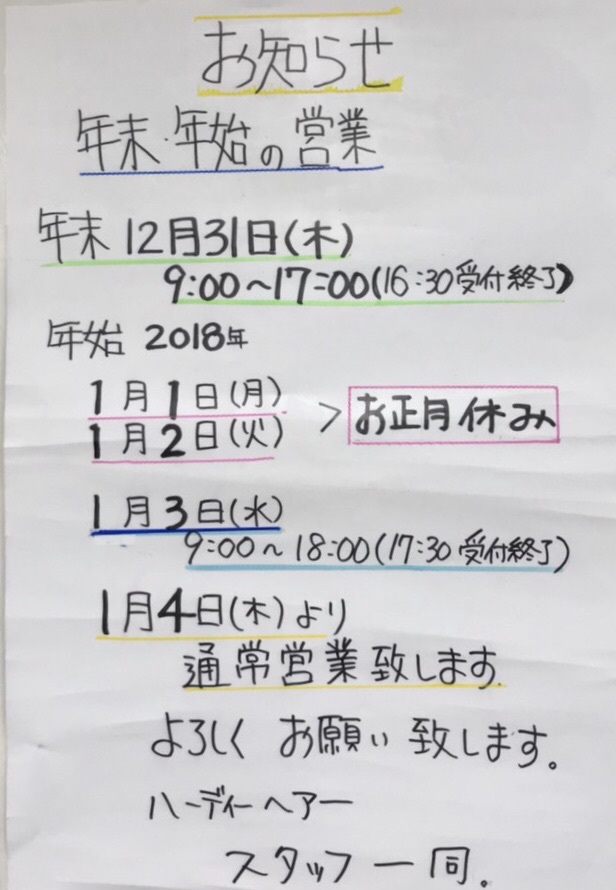 お知らせ
年末·年始の営業
年末 12月31日(木)
9:00~17:00(16:30受付終了)
年始 2018年
1月1日(月)
1月2日(火)
> お正月休み
1月3日(水)
9:00~18:00(17:30受付終了)
1月4日(木)より
通常営業致します.
よろしく お願い致します。
ハーディーヘアー
スタッフ一同.